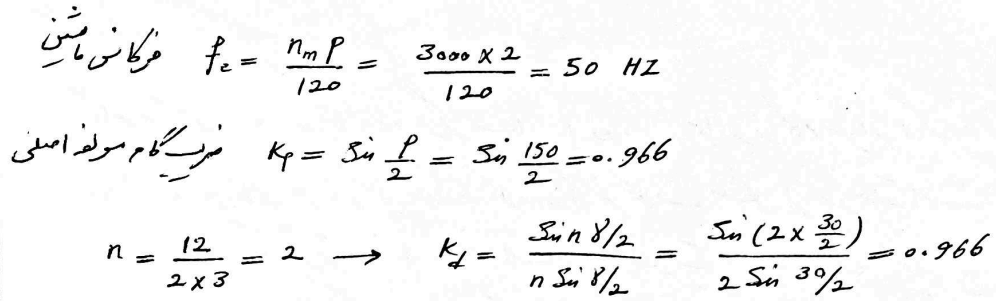 فرکانس ماشین f_e = n_m P / 120 = 3000 × 2 / 120 = 50 HZ
ضریب گام مولفه اصلی K_p = Sin ρ/2 = Sin 150/2 = 0.966
n = 12 / 2×3 = 2 → K_d = Sin n γ/2 / n Sin γ/2 = Sin (2 × 30/2) / 2 Sin 30/2 = 0.966